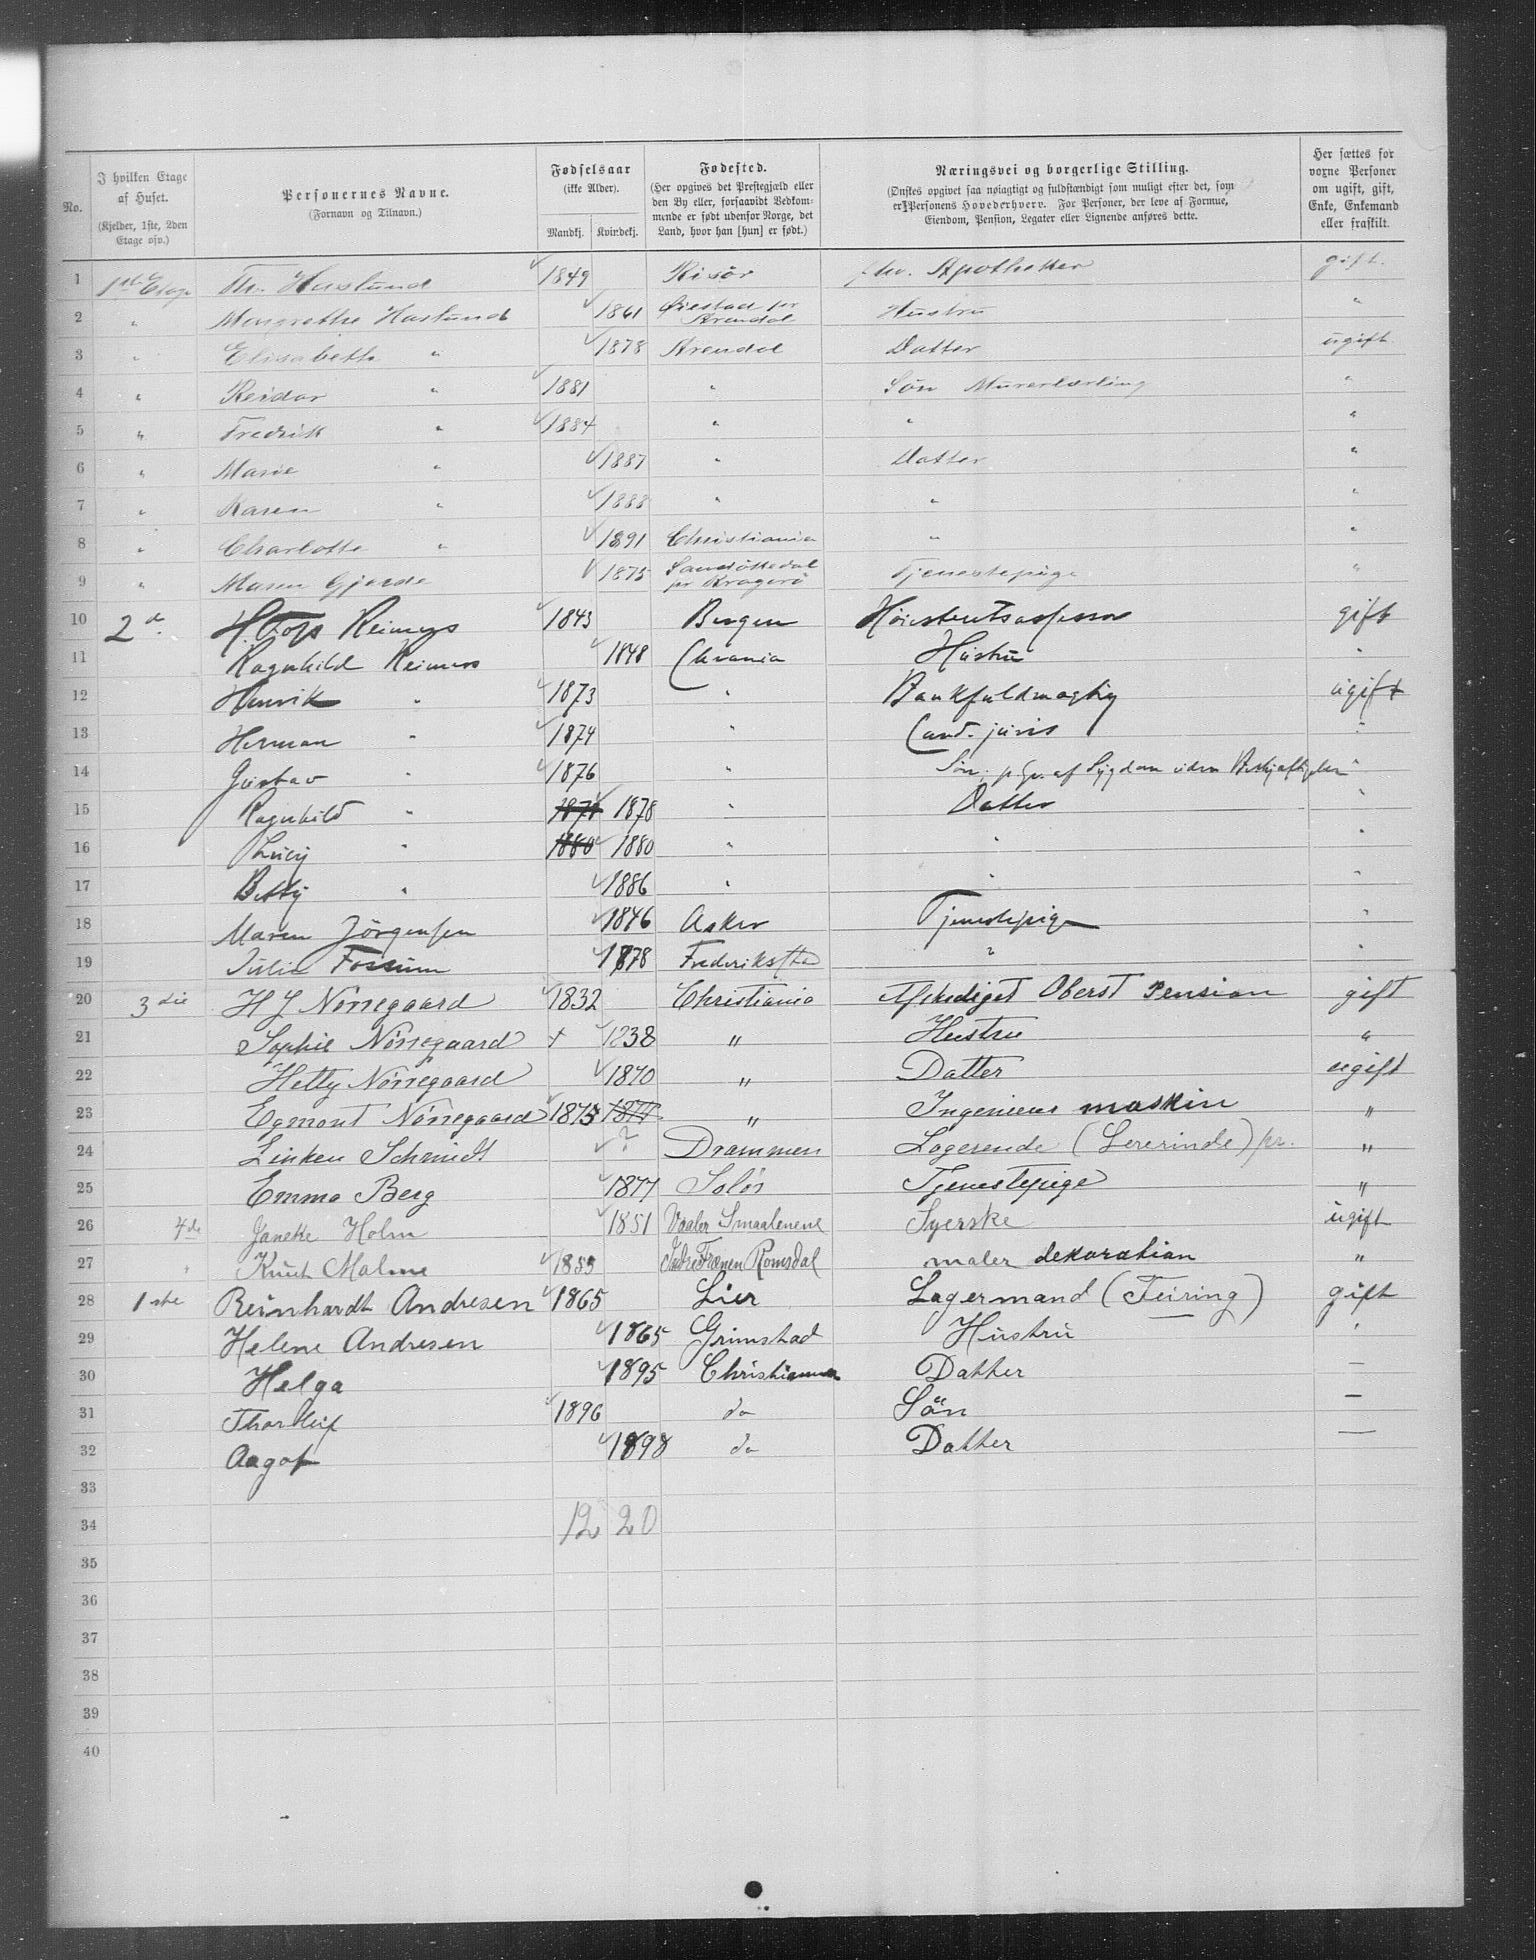 No. | I hvilken Etage af Huset. (Kjelder, 1ste, 2den Etage osv.) | Personernes Navne. (Fornavn og Tilnavn.) | Fødselsaar (ikke Alder). Mandkj. Kvindekj. | Fødested. (Her opgives det Prestegjæld eller den By eller, forsaavidt Vedkommende er født udenfor Norge, det Land, hvor han [hun] er født.) | Næringsvei og borgerlige Stilling. (Ønskes opgivet saa nøiagtigt og fuldstændigt som muligt efter det, som er Personens Hovederhverv. For Personer, der leve af Formue, Eiendom, Pension, Legater eller Lignende anføres dette.) | Her sættes for voxne Personer om ugift, gift, Enke, Enkemand eller fraskilt.
1 1ste Etage Th. Haslund 1849 Risör Apotheker gift.
2 " Margrethe Haslund 1861 Øiestad pr Arendal Hustru "
3 " Elisabeth " 1878 Arendal Datter ugift
4 " Reidar " 1881 " Sön Murerlærling "
5 " Fredrik " 1884 " " "
6 " Marie " 1887 " Datter "
7 " Karen " 1888 " " "
8 " Charlotte " 1891 Christiania " "
9 " Maren Gjerde 1875 Sandökedal pr Kragerö Tjenestepige "
10 2d. H. Foss Reimers 1843 Bergen Høiesteretsassessor gift
11 Ragnhild Reimers 1848 Chrania Hustru "
12 Henrik " 1873 " Bankfuldmægtig ugift
13 Herman " 1874 " Cand. juris "
14 Gustav " 1876 " Sön, p. Gr. af Sygdom uden Beskjæftigelse "
15 Ragnhild " 1878 1878 " Datter "
16 Lucy " 1880 1880 " " "
17 Betty " 1886 " " "
18 Maren Jörgensen 1846 Asker Tjenestepige "
19 Julie Fossum 1878 Frederikstad " "
20 3die H J Nörregaard 1832 Christiania Afskediget Oberst Pension gift
21 Sophie Nörregaard + 1838 " Hustru "
22 Hetty Nörregaard 1870 " Datter ugift
23 Egmont Nörregaard 1875 1877 " Ingenieur maskin "
24 Linken Schmidt ? Drammen Logerende (Lererinde) pr. "
25 Emma Berg 1877 Solör Tjenestepige "
26 4de Janeke Holm 1851 Vaaler Smaalenene Syerske ugift
27 " Knut Malme 1855 Indre Frænen Romsdal maler dekoration "
28 1ste Reinhardt Andresen 1865 Lier Lagermand (Feiring) gift
29 Helene Andresen 1865 Grimstad Hustru "
30 Helga 1895 Christiania Datter —
31 Thorleif 1896 do Sön —
32 Aagot 1898 do Datter —
33
34 12 20
35
36
37
38
39
40